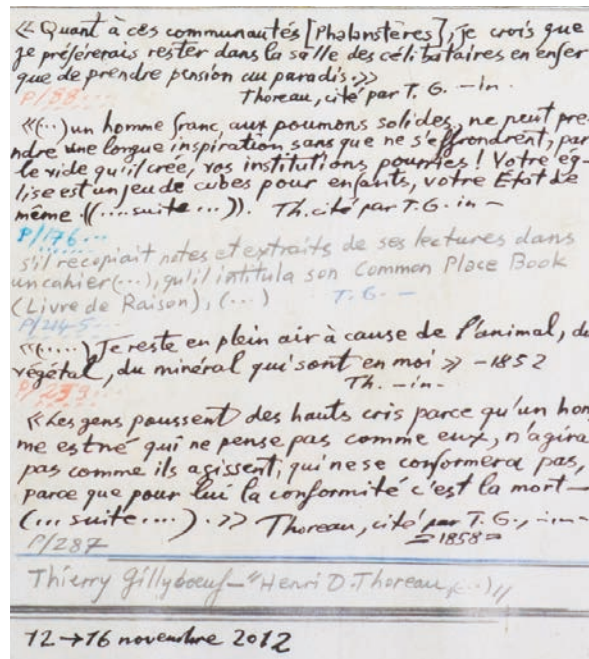 « Quant à ces communautés [Phalanstères], je crois que
je préférerais rester dans la salle des célibataires en enfer
que de prendre pension au paradis.»
P/88...
Thoreau, cité par T. G. –in-
«(...) un homme franc, aux poumons solides, ne peut pre-
ndre une longue inspiration sans que ne s'effrondrent, par
le vide qu'il crée, vos institutions pourries ! Votre ég-
lise est un jeu de cubes pour enfants, votre État de
même ((....suite...)). Th. cité par T. G. in –
P/176...
s'il recopiait notes et extraits de ses lectures dans
un cahier (...), qu'il intitula son Common Place Book
(Livre de Raison), (...) T. G. –
P/214-5...
«(.....) Je reste en plein air à cause de l'animal, du
végétal, du minéral qui sont en moi » –1852
Th. –in-
P/239...
«Les gens poussent des hauts cris parce qu'un hom
me est né qui ne pense pas comme eux, n'agira
pas comme ils agissent, qui ne se conformera pas,
parce que pour lui la conformité c'est la mort –
(... suite ....) .» Thoreau, cité par T. G., –in-
=1858=
P/287
Thierry Gillybœuf – "Henri D. Thoreau, (...)"
12 → 16 novembre 2012